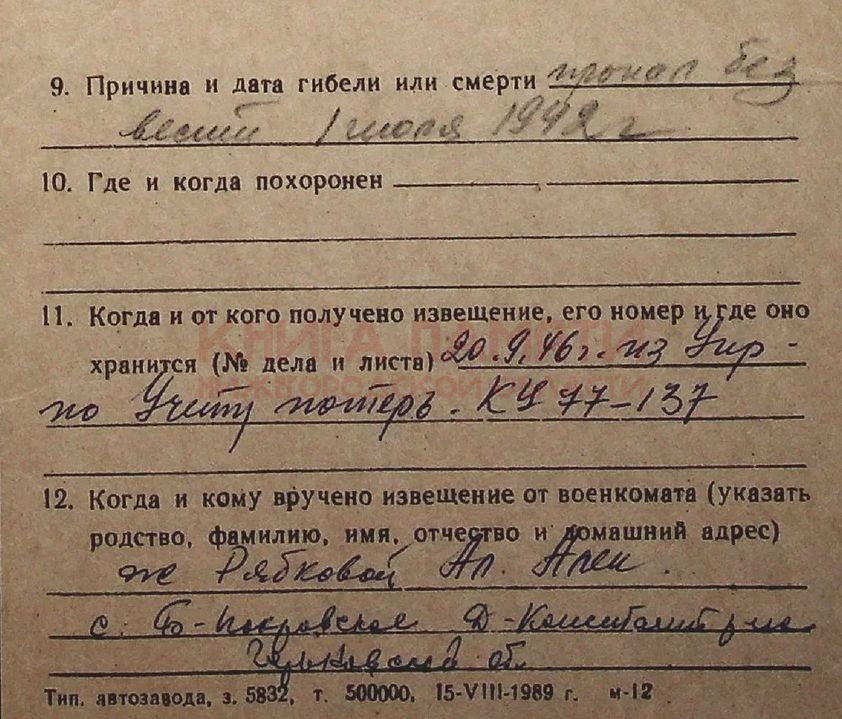 9. Причина и дата гибели или смерти пропал без
вести 1 июля 1942 г
10. Где и когда похоронен
11. Когда и от кого получено извещение, его номер и где оно
хранится (№ дела и листа) 20.9.46 г. из Упр-
по Учету потерь. КУ 77-137
12. Когда и кому вручено извещение от военкомата (указать
родство, фамилию, имя, отчество и домашний адрес)
Рябковой Ал. Алек.
с. Б-Покровское Д-Константин р-на
Горьковской об.
Тип. автозавода, з. 5832, т. 500000, 15-VIII-1989 г. м-12